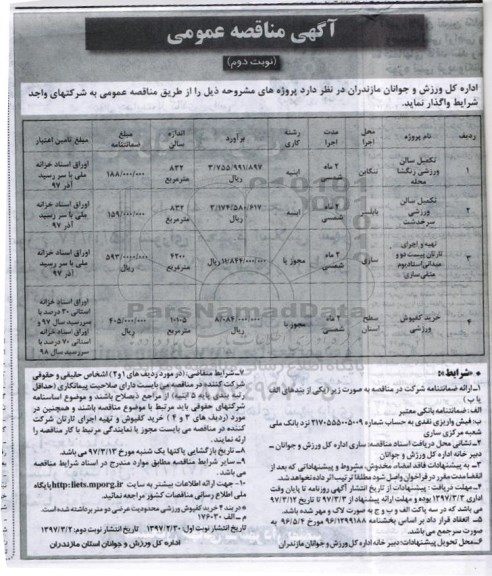 آگهی مناقصه عمومی
(نوبت دوم)
اداره کل ورزش و جوانان مازندران در نظر دارد پروژه های مشروحه ذیل را از طریق مناقصه عمومی به شرکتهای واجد
شرایط واگذار نماید.
ردیف نام پروژه محل اجرا مدت اجرا رشته کاری برآورد اندازه سالن مبلغ ضمانتنامه مبلغ تامین اعتبار
۱ تکمیل سالن ورزشی زنگشا محله تنکابن ۲ ماه شمسی ابنیه ۳/۷۵۵/۹۹۱/۸۹۷ ریال ۸۳۲ مترمربع ۱۸۸/۰۰۰/۰۰۰ اوراق اسناد خزانه ملی با سر رسید آذر ۹۷
۲ تکمیل سالن ورزشی سرخدشت بابلسر ۲ ماه شمسی ابنیه ۳/۱۷۴/۵۸۰/۶۱۷ ریال ۸۳۲ مترمربع ۱۵۹/۰۰۰/۰۰۰ اوراق اسناد خزانه ملی با سر رسید آذر ۹۷
۳ تهیه و اجرای تارتان پیست دو و میدانی استادیوم متقی ساری ساری ۲ ماه شمسی مجوز یا ۱۱/۸۴۴/۰۰۰/۰۰۰ ریال ۴۲۰۰ مترمربع ۵۹۳/۰۰۰/۰۰۰ ریال اوراق اسناد خزانه ملی با سر رسید آذر ۹۷
۴ خرید کفپوش ورزشی سطح استان ۲ ماه شمسی مجوز یا ۸/۰۸۴/۰۰۰/۰۰۰ ریال ۱۰۱۰۵ مترمربع ۴۰۵/۰۰۰/۰۰۰ ریال اوراق اسناد خزانه استانی ۳۰ درصد با سررسید سال ۹۷ و اوراق اسناد خزانه استانی ۷۰ درصد با سررسید سال ۹۸
ParsNamadData
* شرایط:
۱ـ ارائه ضمانتنامه شرکت در مناقصه به صورت زیر (یکی از بندهای الف
یا ب)
الف: ضمانتنامه بانکی معتبر
ب: فیش واریزی نقدی به حساب شماره ۲۱۷۰۵۵۵۰۰۵۰۰۹ نزد بانک ملی
شعبه مرکزی ساری
۲ـ نشانی محل دریافت اسناد مناقصه: ساری اداره کل ورزش و جوانان ـ
دبیر خانه اداره کل ورزش و جوانان
۳ـ به پیشنهادات فاقد امضاء، مخدوش، مشروط و پیشنهاداتی که بعد از
انقضا مدت مقرر در فراخوان واصل شود مطلقا ترتیب اثر داده نخواهد شد.
۴ـ مهلت دریافت: پیشنهادات از تاریخ انتشار آگهی روزنامه تا پایان وقت
اداری ۱۳۹۷/۳/۲ بوده و مهلت ارائه پیشنهاد از ۹۷/۳/۳ تا تاریخ ۹۷/۳/۱۲
می باشد که در سه پاکت الف و ب و ج به صورت لاک و مهر شده باشد.
۵ـ انعقاد قرار داد بر اساس بخشنامه ۹۶/۱۲۹۹۱۸۸ مورخ ۹۶/۵/۴ به
صورت سر جمع می باشد.
۶ـ محل تحویل پیشنهادات: دبیر خانه اداره کل ورزش و جوانان مازندران
۷ـ شرایط متقاضی: (در مورد ردیف های ۱ و ۲) اشخاص حقیقی و حقوقی
شرکت کننده در مناقصه می بایست دارای صلاحیت پیمانکاری (حداقل
رتبه بندی پایه ۵ ابنیه) از مراجع ذیصلاح باشند و موضوع اساسنامه
شرکتهای حقوقی باید مرتبط با موضوع مناقصه باشند و همچنین در
مورد (ردیف های ۳ و ۴) خرید کفپوش و تهیه اجرای تارتان شرکت
کننده در مناقصه می بایست مجوز یا نمایندگی مرتبط با کار مناقصه را
ارئه نمایند.
۸ـ تاریخ بازگشایی پاکتها یک شنبه مورخ ۹۷/۳/۱۳ می باشد.
۹ـ سایر شرایط مناقصه مطابق موارد مندرج در اسناد شرایط مناقصه
می باشد.
۱۰ـ جهت ارائه اطلاعات بیشتر به سایت http:liets.mporg.ir پایگاه
ملی اطلاع رسانی مناقصات کشور مراجعه نمائید.
* در بند ۴ خرید کفپوش ورزشی محدودیت عرضی دو متر برداشته شده است.
م ـ الف ۱۷۶۰۳۰
تاریخ انتشار نوبت اول: ۱۳۹۷/۲/۳۰ تاریخ انتشار نوبت دوم: ۱۳۹۷/۳/۲
اداره کل ورزش و جوانان استان مازندران